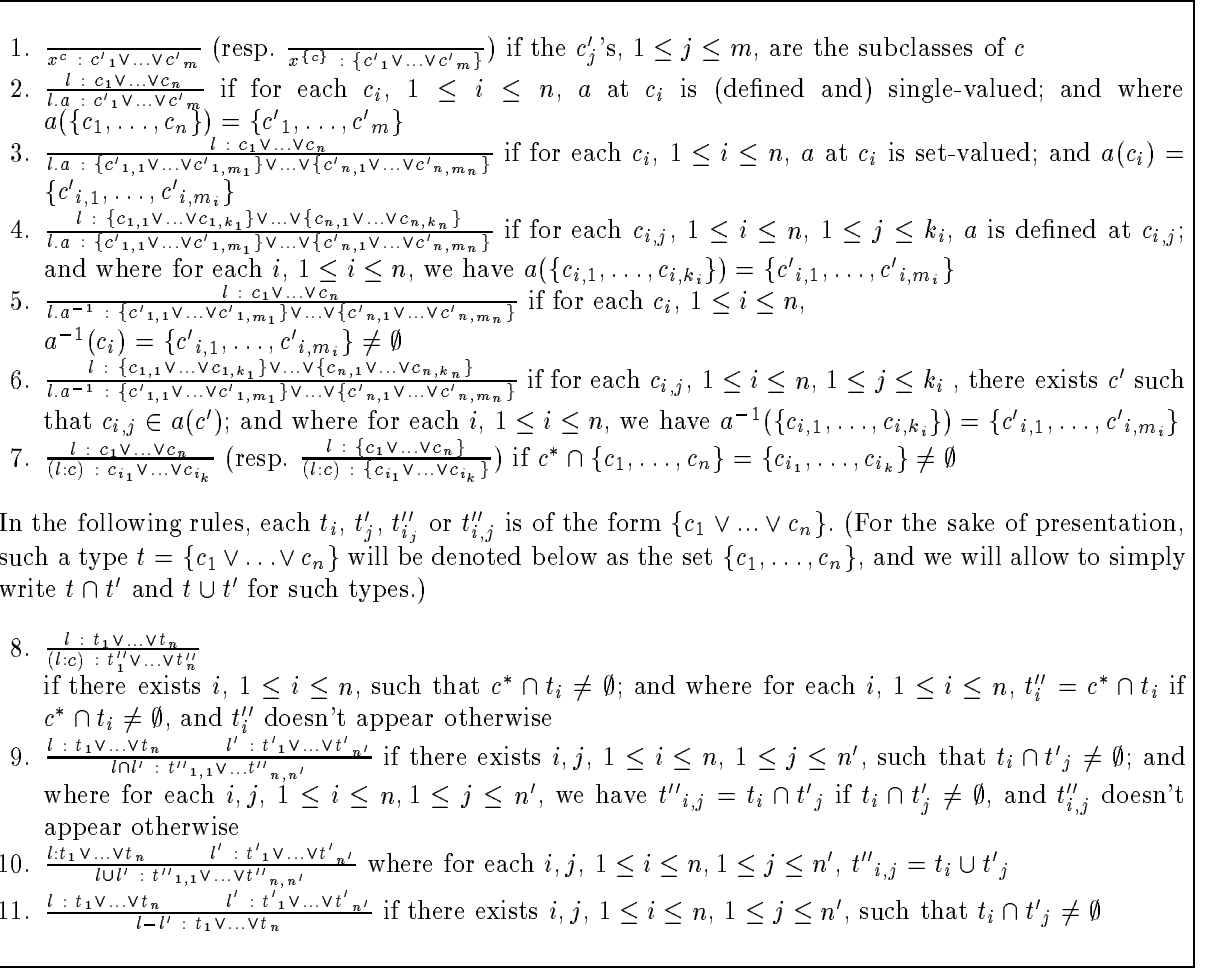 1. \frac{}{x^c : c'_1∨...∨c'_m} (resp. \frac{}{x^{\{c\}} : \{c'_1∨...∨c'_m\}}) if the c'_j's, 1 ≤ j ≤ m, are the subclasses of c
2. \frac{l : c_1∨...∨c_n}{l.a : c'_1∨...∨c'_m} if for each c_i, 1 ≤ i ≤ n, a at c_i is (defined and) single-valued; and where
a({c_1, . . . , c_n}) = {c'_1, . . . , c'_m}
3. \frac{l : c_1∨...∨c_n}{l.a : \{c'_{1,1}∨...∨c'_{1,m_1}\}∨...∨\{c'_{n,1}∨...∨c'_{n,m_n}\}} if for each c_i, 1 ≤ i ≤ n, a at c_i is set-valued; and a(c_i) =
{c'_{i,1}, . . . , c'_{i,m_i}}
4. \frac{l : \{c_{1,1}∨...∨c_{1,k_1}\}∨...∨\{c_{n,1}∨...∨c_{n,k_n}\}}{l.a : \{c'_{1,1}∨...∨c'_{1,m_1}\}∨...∨\{c'_{n,1}∨...∨c'_{n,m_n}\}} if for each c_{i,j}, 1 ≤ i ≤ n, 1 ≤ j ≤ k_i, a is defined at c_{i,j};
and where for each i, 1 ≤ i ≤ n, we have a({c_{i,1}, . . . , c_{i,k_i}}) = {c'_{i,1}, . . . , c'_{i,m_i}}
5. \frac{l : c_1∨...∨c_n}{l.a^{-1} : \{c'_{1,1}∨...∨c'_{1,m_1}\}∨...∨\{c'_{n,1}∨...∨c'_{n,m_n}\}} if for each c_i, 1 ≤ i ≤ n,
a^{-1}(c_i) = {c'_{i,1}, . . . , c'_{i,m_i}} ≠ ∅
6. \frac{l : \{c_{1,1}∨...∨c_{1,k_1}\}∨...∨\{c_{n,1}∨...∨c_{n,k_n}\}}{l.a^{-1} : \{c'_{1,1}∨...∨c'_{1,m_1}\}∨...∨\{c'_{n,1}∨...∨c'_{n,m_n}\}} if for each c_{i,j}, 1 ≤ i ≤ n, 1 ≤ j ≤ k_i , there exists c' such
that c_{i,j} ∈ a(c'); and where for each i, 1 ≤ i ≤ n, we have a^{-1}({c_{i,1}, . . . , c_{i,k_i}}) = {c'_{i,1}, . . . , c'_{i,m_i}}
7. \frac{l : c_1∨...∨c_n}{(l:c) : c_{i_1}∨...∨c_{i_k}} (resp. \frac{l : \{c_1∨...∨c_n\}}{(l:c) : \{c_{i_1}∨...∨c_{i_k}\}}) if c* ∩ {c_1, . . . , c_n} = {c_{i_1}, . . . , c_{i_k}} ≠ ∅
In the following rules, each t_i, t'_j, t''_{i_j} or t''_{i,j} is of the form {c_1 ∨ ... ∨ c_n}. (For the sake of presentation,
such a type t = {c_1 ∨ . . . ∨ c_n} will be denoted below as the set {c_1, . . . , c_n}, and we will allow to simply
write t ∩ t' and t ∪ t' for such types.)
8. \frac{l : t_1∨...∨t_n}{(l:c) : t''_1∨...∨t''_n}
if there exists i, 1 ≤ i ≤ n, such that c* ∩ t_i ≠ ∅; and where for each i, 1 ≤ i ≤ n, t''_i = c* ∩ t_i if
c* ∩ t_i ≠ ∅, and t''_i doesn't appear otherwise
9. \frac{l : t_1∨...∨t_n   l' : t'_1∨...∨t'_{n'}}{l∩l' : t''_{1,1}∨...t''_{n,n'}} if there exists i, j, 1 ≤ i ≤ n, 1 ≤ j ≤ n', such that t_i ∩ t'_j ≠ ∅; and
where for each i, j, 1 ≤ i ≤ n, 1 ≤ j ≤ n', we have t''_{i,j} = t_i ∩ t'_j if t_i ∩ t'_j ≠ ∅, and t''_{i,j} doesn't
appear otherwise
10. \frac{l:t_1∨...∨t_n   l' : t'_1∨...∨t'_{n'}}{l∪l' : t''_{1,1}∨...∨t''_{n,n'}} where for each i, j, 1 ≤ i ≤ n, 1 ≤ j ≤ n', t''_{i,j} = t_i ∪ t'_j
11. \frac{l : t_1∨...∨t_n   l' : t'_1∨...∨t'_{n'}}{l−l' : t_1∨...∨t_n} if there exists i, j, 1 ≤ i ≤ n, 1 ≤ j ≤ n', such that t_i ∩ t'_j ≠ ∅